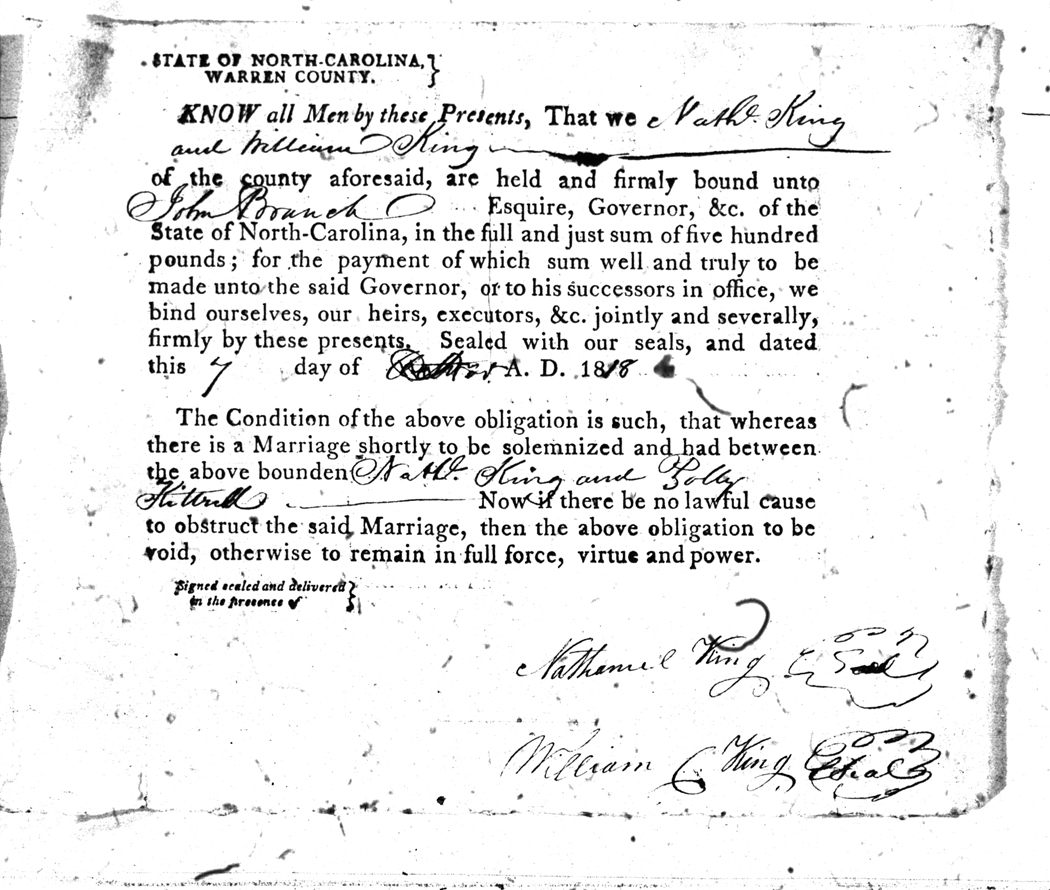 STATE OF NORTH-CAROLINA,
WARREN COUNTY.
KNOW all Men by these Presents, That we Nathl. King
and William King
of the county aforesaid, are held and firmly bound unto
John Branch Esquire, Governor, &c. of the
State of North-Carolina, in the full and just sum of five hundred
pounds; for the payment of which sum well and truly to be
made unto the said Governor, or to his successors in office, we
bind ourselves, our heirs, executors, &c. jointly and severally,
firmly by these presents. Sealed with our seals, and dated
this 7 day of A. D. 1818
The Condition of the above obligation is such, that whereas
there is a Marriage shortly to be solemnized and had between
the above bounden Nathl. King and Polly
Kittrell Now if there be no lawful cause
to obstruct the said Marriage, then the above obligation to be
void, otherwise to remain in full force, virtue and power.
Signed sealed and delivered
in the presence of
Nathaniel King Seal
William C King Seal